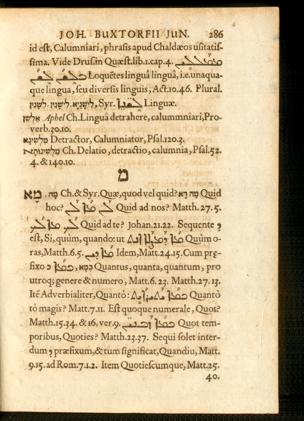 JOH. BUXTORFII JUN. 286
id est, Calumniari, phrasis apud Chaldæos usitatis-
sima. Vide Drusiũ Quæst.lib.1.cap.4.
Loquẽtes linguâ linguâ, i.e. unaqua-
que lingua, seu diversis linguis, Act.10.46. Plural.
Syr. Linguæ.
Aphel Ch. Linguâ detrahere, calummniari, Pro-
verb.30.10.
Detractor, Calumniator, Psal.120.3.
Ch. Delatio, detractio, calumnia, Psal.52.
4. & 140.10.
מ
מא Ch.& Syr. Quæ, quod vel quid? Quid
hoc? Quid ad nos? Matth.27.5.
Quid ad te? Johan.21.22. Sequente
est, Si, quùm, quando: ut Quùm o-
ras, Matth.6.5. Idem, Matt.24.15. Cum præ-
fixo Quantus, quanta, quantum, pro
utroq; genere & numero, Matt.6.23. Matth.27.13.
Itẽ Adverbialiter, Quantò: Quantò
tò magis? Matt.7.11. Est quoque numerale, Quot?
Matth.15.34. & 16. ver.9. Quot tem-
poribus, Quoties? Matth.23.37. Sequi solet inter-
dum præfixum, & tum significat, Quandiu, Matt.
9.15. ad Rom.7.1.2. Item Quotiescumque, Matt.25.
40.